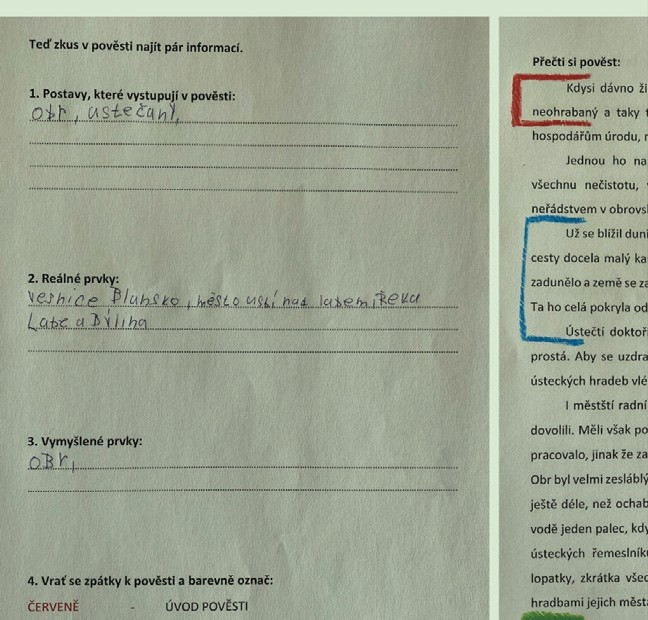 Teď zkus v pověsti najít pár informací.
1. Postavy, které vystupují v pověsti:
obr, ustečaný,
2. Reálné prvky:
vesnice Blansko, město ustí nad labem, Řeka
Labe a Bílina
3. Vymyšlené prvky:
OBR,
4. Vrať se zpátky k pověsti a barevně označ:
ČERVENĚ - ÚVOD POVĚSTI
Přečti si pověst:
Kdysi dávno ži
neohrabaný a taky t
hospodářům úrodu, r
Jednou ho na
všechnu nečistotu, v
neřádstvem v obrovsk
Už se blížil duni
cesty docela malý ka
zadunělo a země se za
Ta ho celá pokryla od
Ústečtí doktoři
prostá. Aby se uzdra
ústeckých hradeb vlé
I městští radní
dovolili. Měli však po
pracovalo, jinak že za
Obr byl velmi zesláblý
ještě déle, než ochab
vodě jeden palec, kdy
ústeckých řemeslníků
lopatky, zkrátka všec
hradbami jejich města